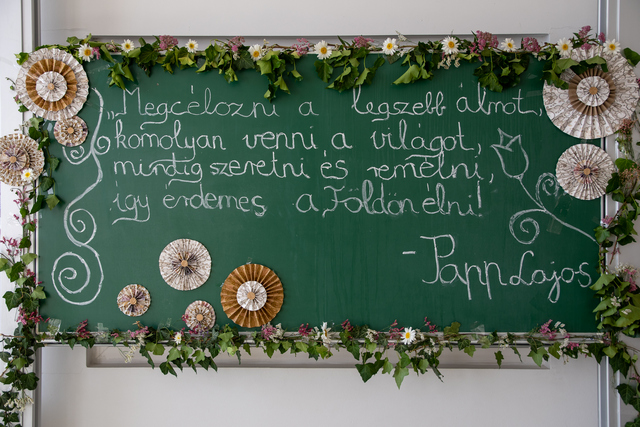 „Megcélozni a legszebb álmot,
komolyan venni a világot,
mindig szeretni és remélni,
így érdemes a Földön élni!
- Papp Lajos